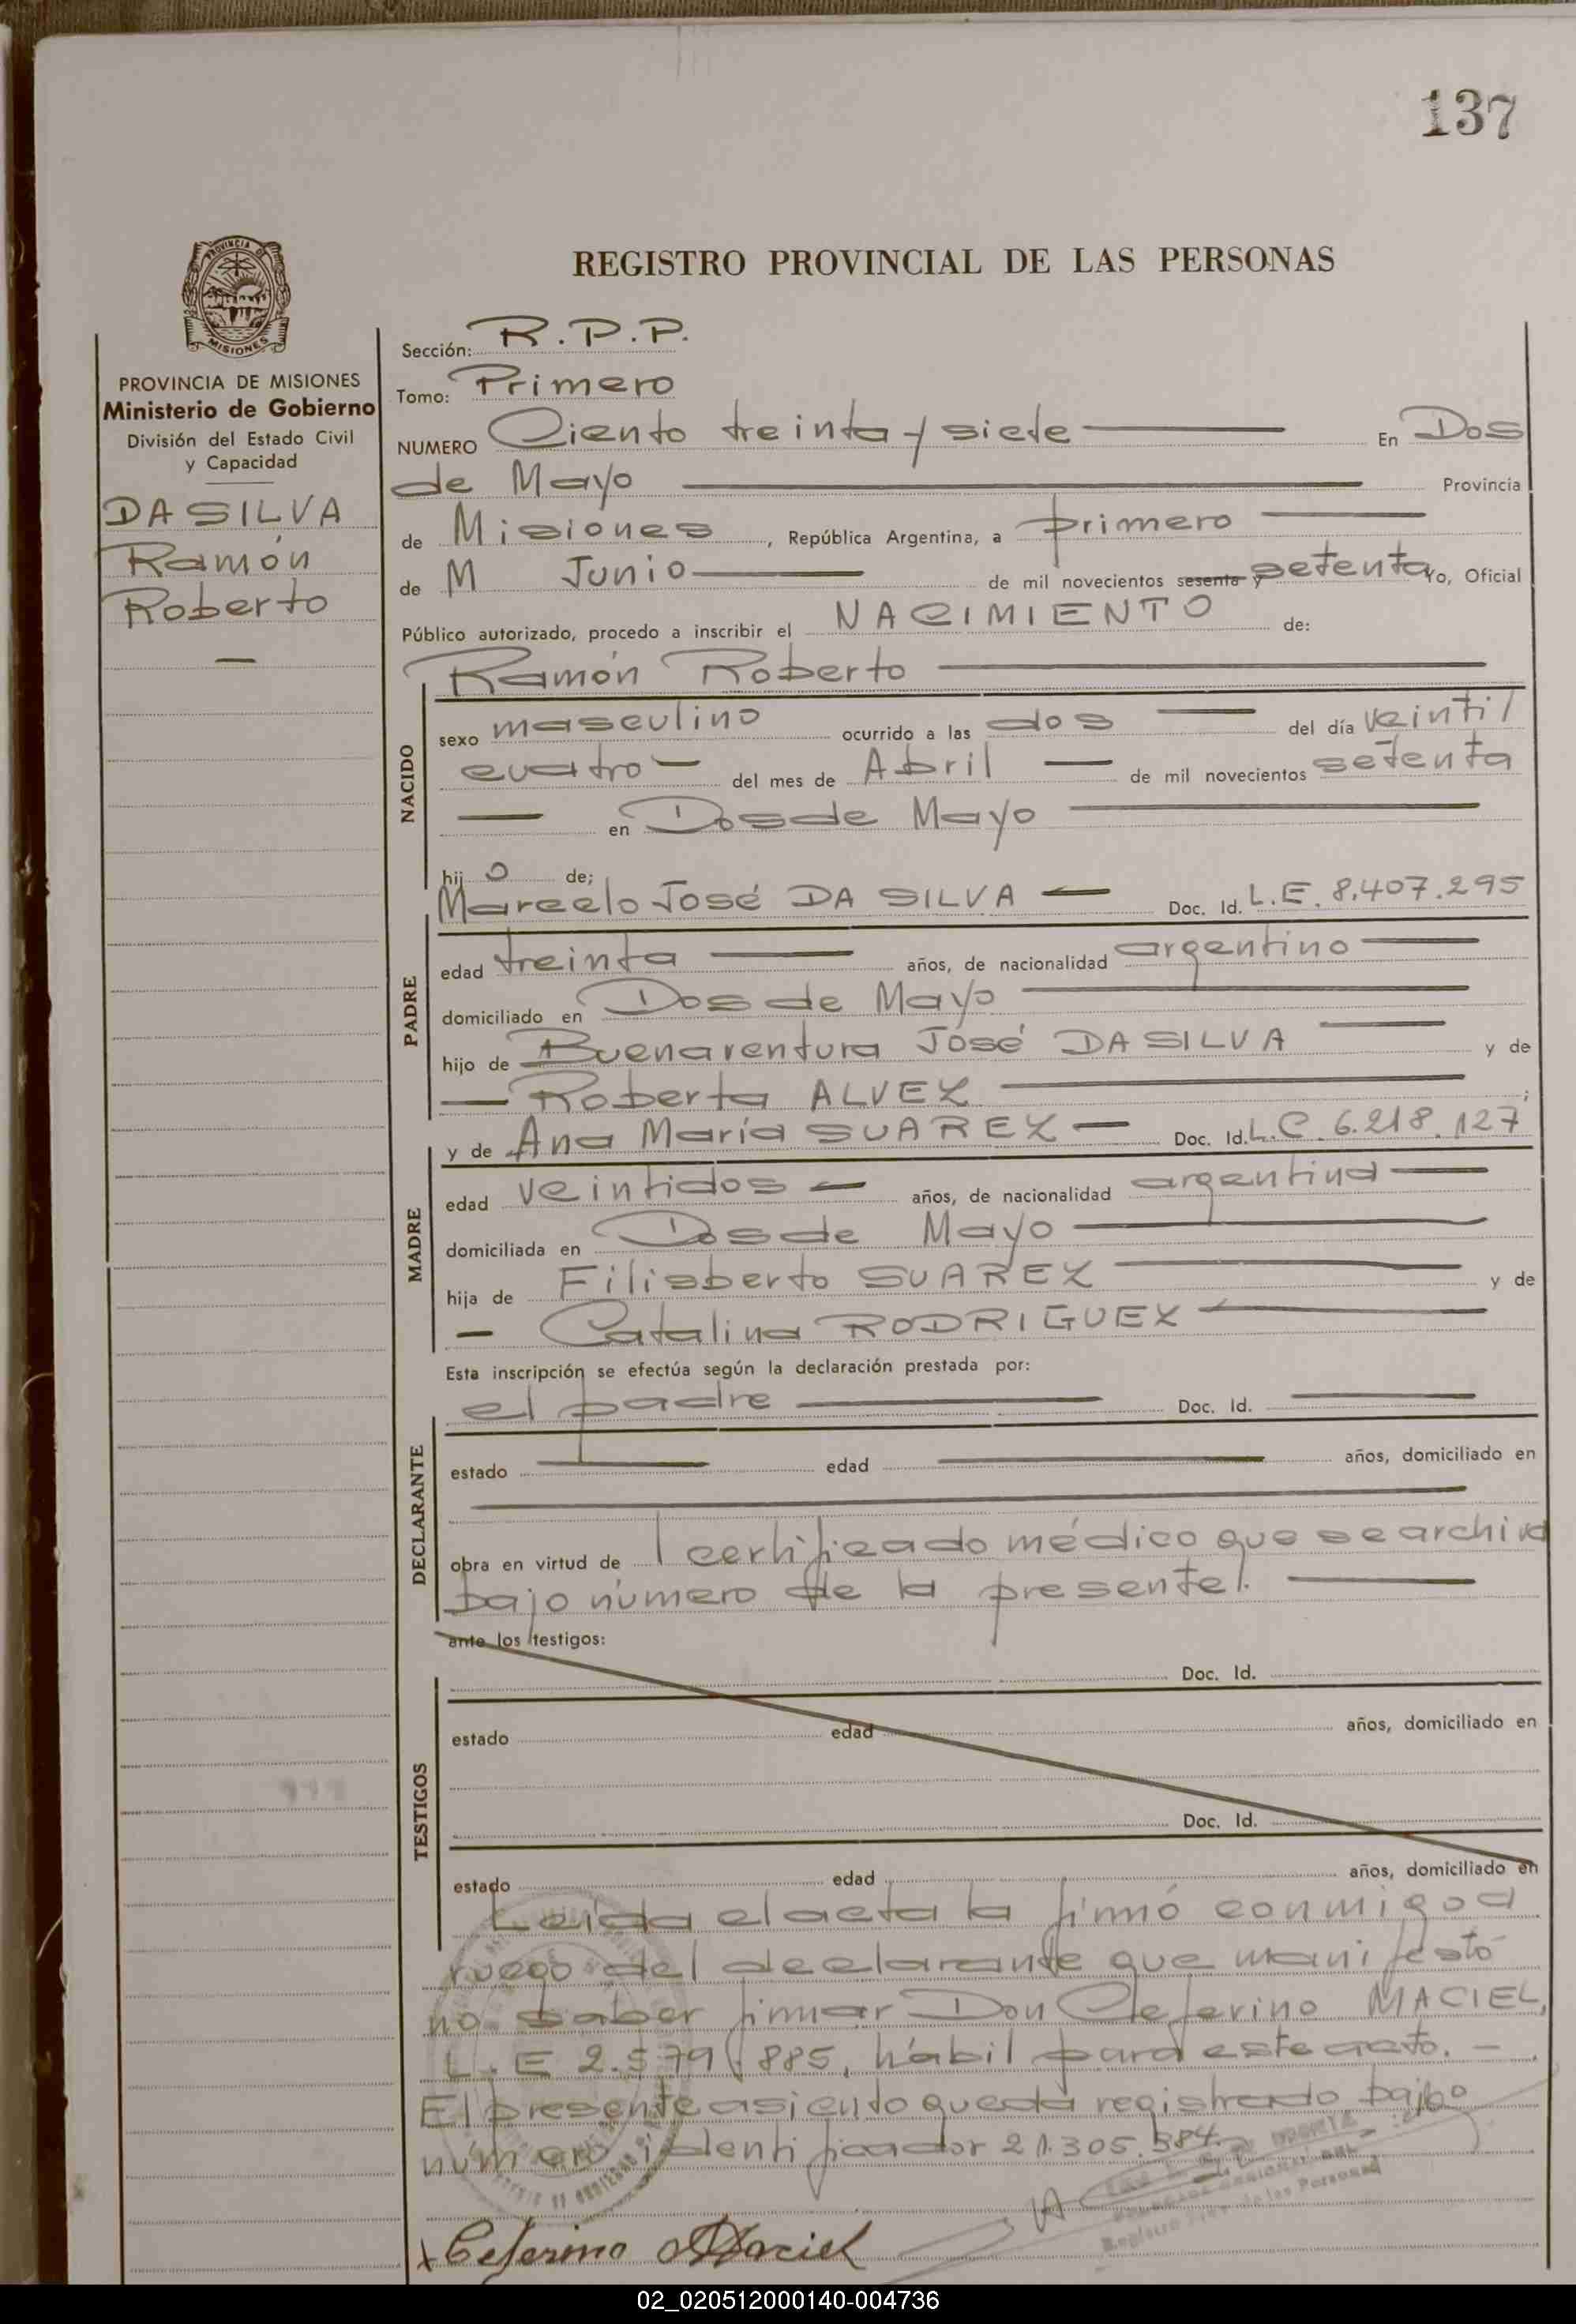 137
PROVINCIA DE
MISIONES
PROVINCIA DE MISIONES
Ministerio de Gobierno
División del Estado Civil
y Capacidad
DA SILVA
Ramón
Roberto
REGISTRO PROVINCIAL DE LAS PERSONAS
Sección: R.P.P.
Tomo: Primero
NUMERO Ciento treinta y siete En Dos
de Mayo Provincia
de Misiones, República Argentina, a primero
de M Junio de mil novecientos sesenta y setenta Yo, Oficial
Público autorizado, procedo a inscribir el NACIMIENTO de:
Ramón Roberto
NACIDO
sexo masculino ocurrido a las dos del día veinti
cuatro del mes de Abril de mil novecientos setenta
en Dos de Mayo
hij o de;
Marcelo José DA SILVA Doc. Id. L.E. 8.407.295
PADRE
edad treinta años, de nacionalidad argentino
domiciliado en Dos de Mayo
hijo de Buenaventura José DA SILVA y de
Roberta ALVEZ ;
y de Ana María SUAREZ Doc. Id. L.C. 6.218.127
MADRE
edad veintidos años, de nacionalidad argentina
domiciliada en Dos de Mayo
hija de Filisberto SUAREZ y de
Catalina RODRIGUEZ
Esta inscripción se efectúa según la declaración prestada por:
el padre Doc. Id.
DECLARANTE
estado edad años, domiciliado en
obra en virtud de l certificado médico que se archiva
bajo número de la presente.
ante los testigos:
Doc. Id.
TESTIGOS
estado edad años, domiciliado en
Doc. Id.
estado edad años, domiciliado en
Leída el acta la firmó conmigo a
ruego del declarante que manifestó
no saber firmar Don Ceferino MACIEL,
L.E 2.579.885, hábil para este acto. -
El presente asiento queda registrado bajo
número identificador 21.305.384
Ceferino Maciel
Registro de las Personas
02_020512000140-004736